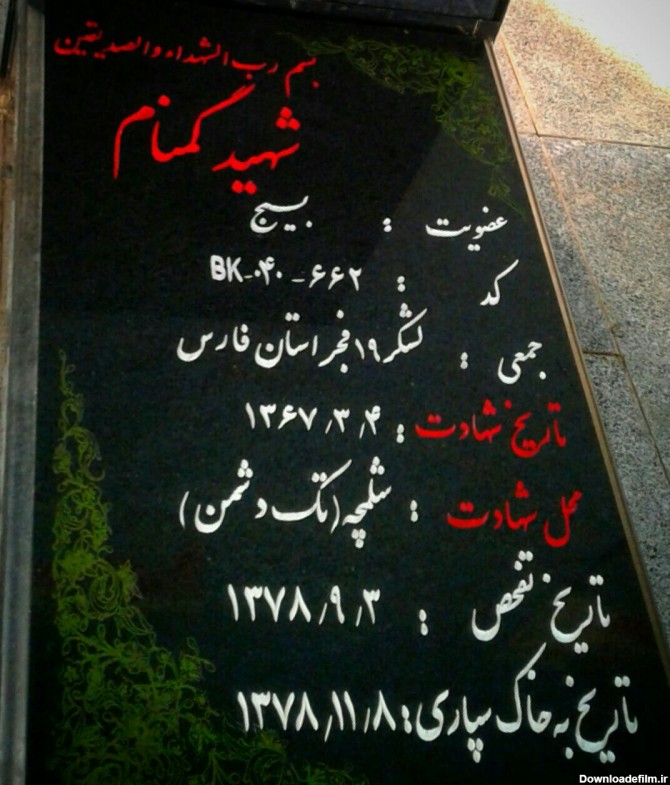 بسم رب الشهداء والصدیقین
شهید گمنام
عضویت : بسیج
کد : BK-۰۴۰-۶۶۲
جمعی : لشگر ۱۹ فجر استان فارس
تاریخ شهادت : ۱۳۶۷/۳/۴
محل شهادت : شلمچه (تک دشمن)
تاریخ تفحص : ۱۳۷۸/۹/۳
تاریخ به خاک سپاری : ۱۳۷۸/۱۱/۸
Downloadefilm.ir